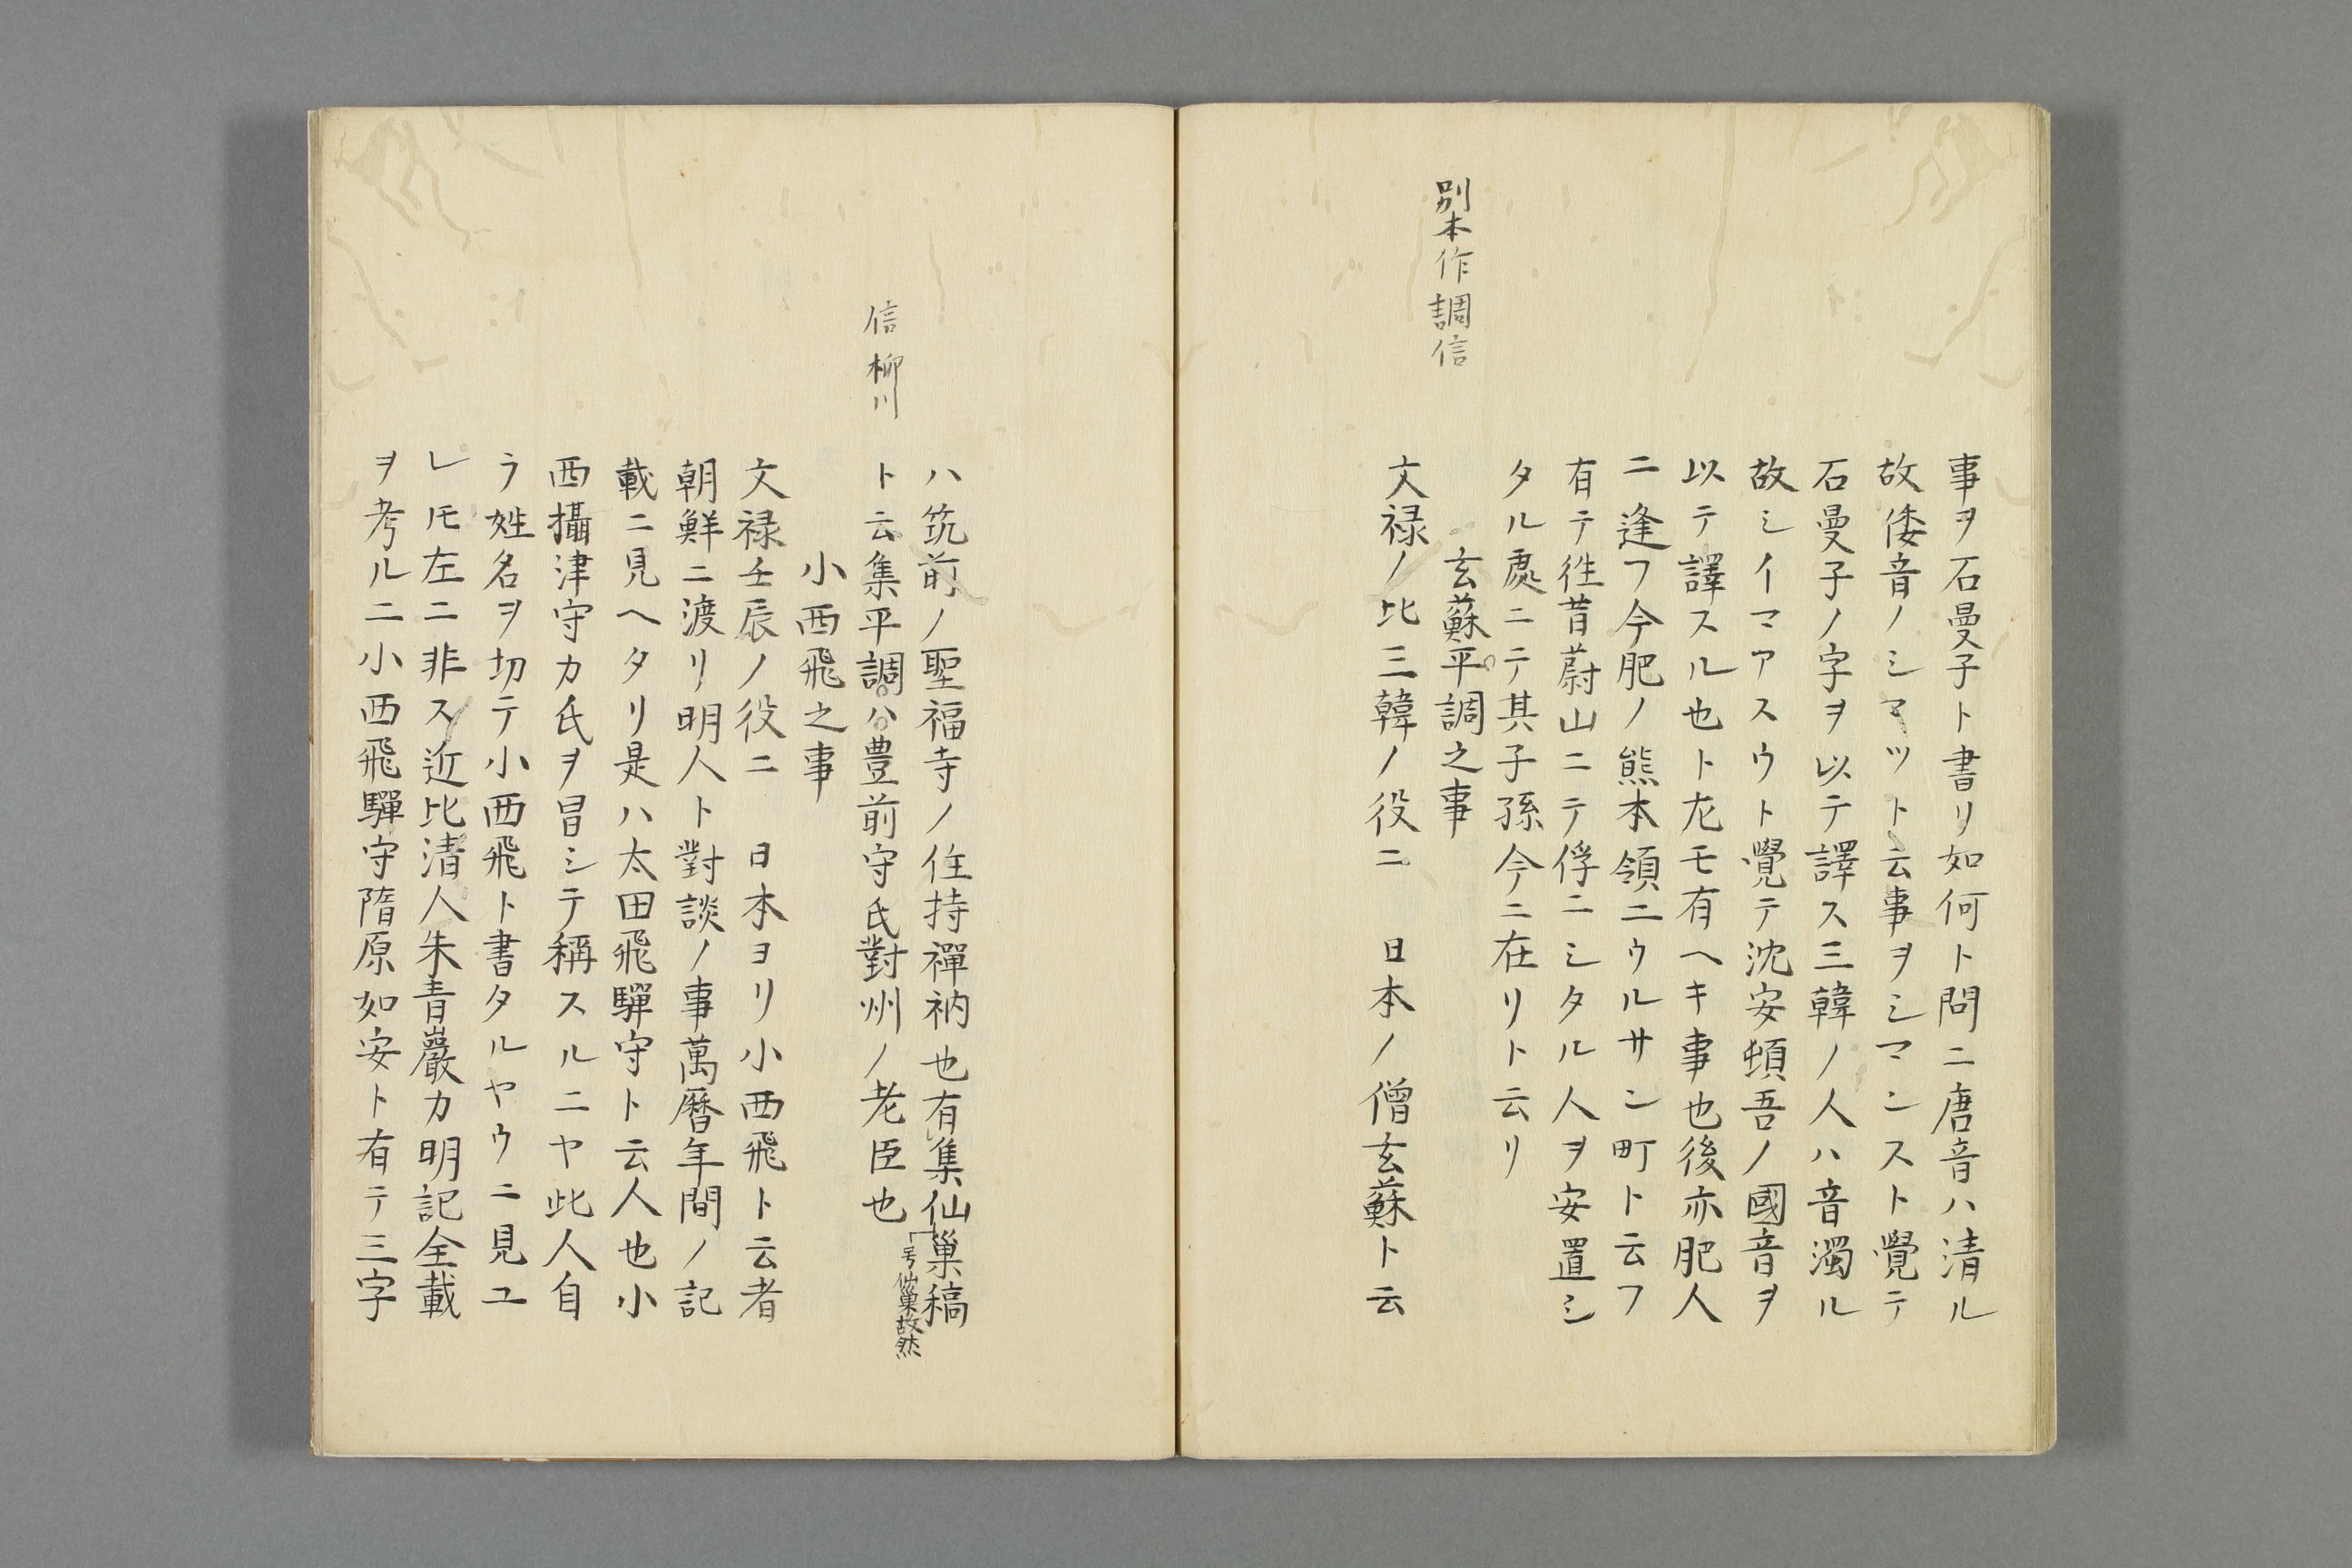 別本作調信
事ヲ石曼子ト書リ如何ト問ニ唐音ハ清ル
故倭音ノシマツト云事ヲシマンスト覺テ
石曼子ノ字ヲ以テ譯ス三韓ノ人ハ音濁ル
故シイマアスウト覺テ沈安頓吾ノ國音ヲ
以テ譯スル也ト尤モ有ヘキ事也後亦肥人
ニ逢フ今肥ノ熊本領ニウルサン町ト云フ
有テ徃昔蔚山ニテ俘ニシタル人ヲ安置シ
タル處ニテ其子孫今ニ在リト云リ
玄蘇平調之事
文禄ノ比三韓ノ役ニ 日本ノ僧玄蘇ト云
信 柳川
ハ筑前ノ聖福寺ノ住持禪衲也有集仙巢稿
ト云集平調ハ豊前守氏對州ノ老臣也
号仙巢故然
小西飛之事
文禄壬辰ノ役ニ 日本ヨリ小西飛ト云者
朝鮮ニ渡リ明人ト對談ノ事萬暦年間ノ記
載ニ見ヘタリ是ハ太田飛驒守ト云人也小
西攝津守カ氏ヲ冒シテ稱スルニヤ此人自
ラ姓名ヲ切テ小西飛ト書タルヤウニ見ユ
レ𪜈左ニ非ス近比清人朱青巖カ明記全載
ヲ考ルニ小西飛驒守隋原如安ト有テ三字